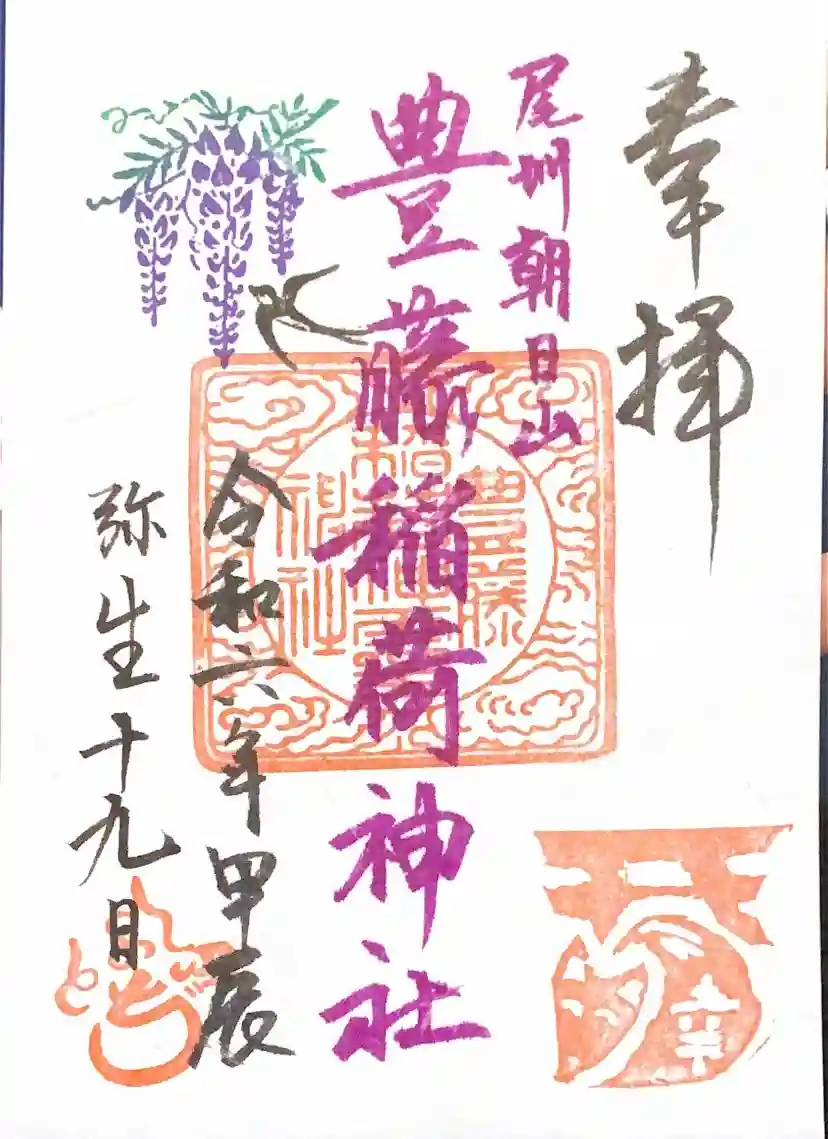 奉拝
尾州朝日山
豊藤稲荷神社
令和六年甲辰
弥生十九日
豊藤
稲荷神社